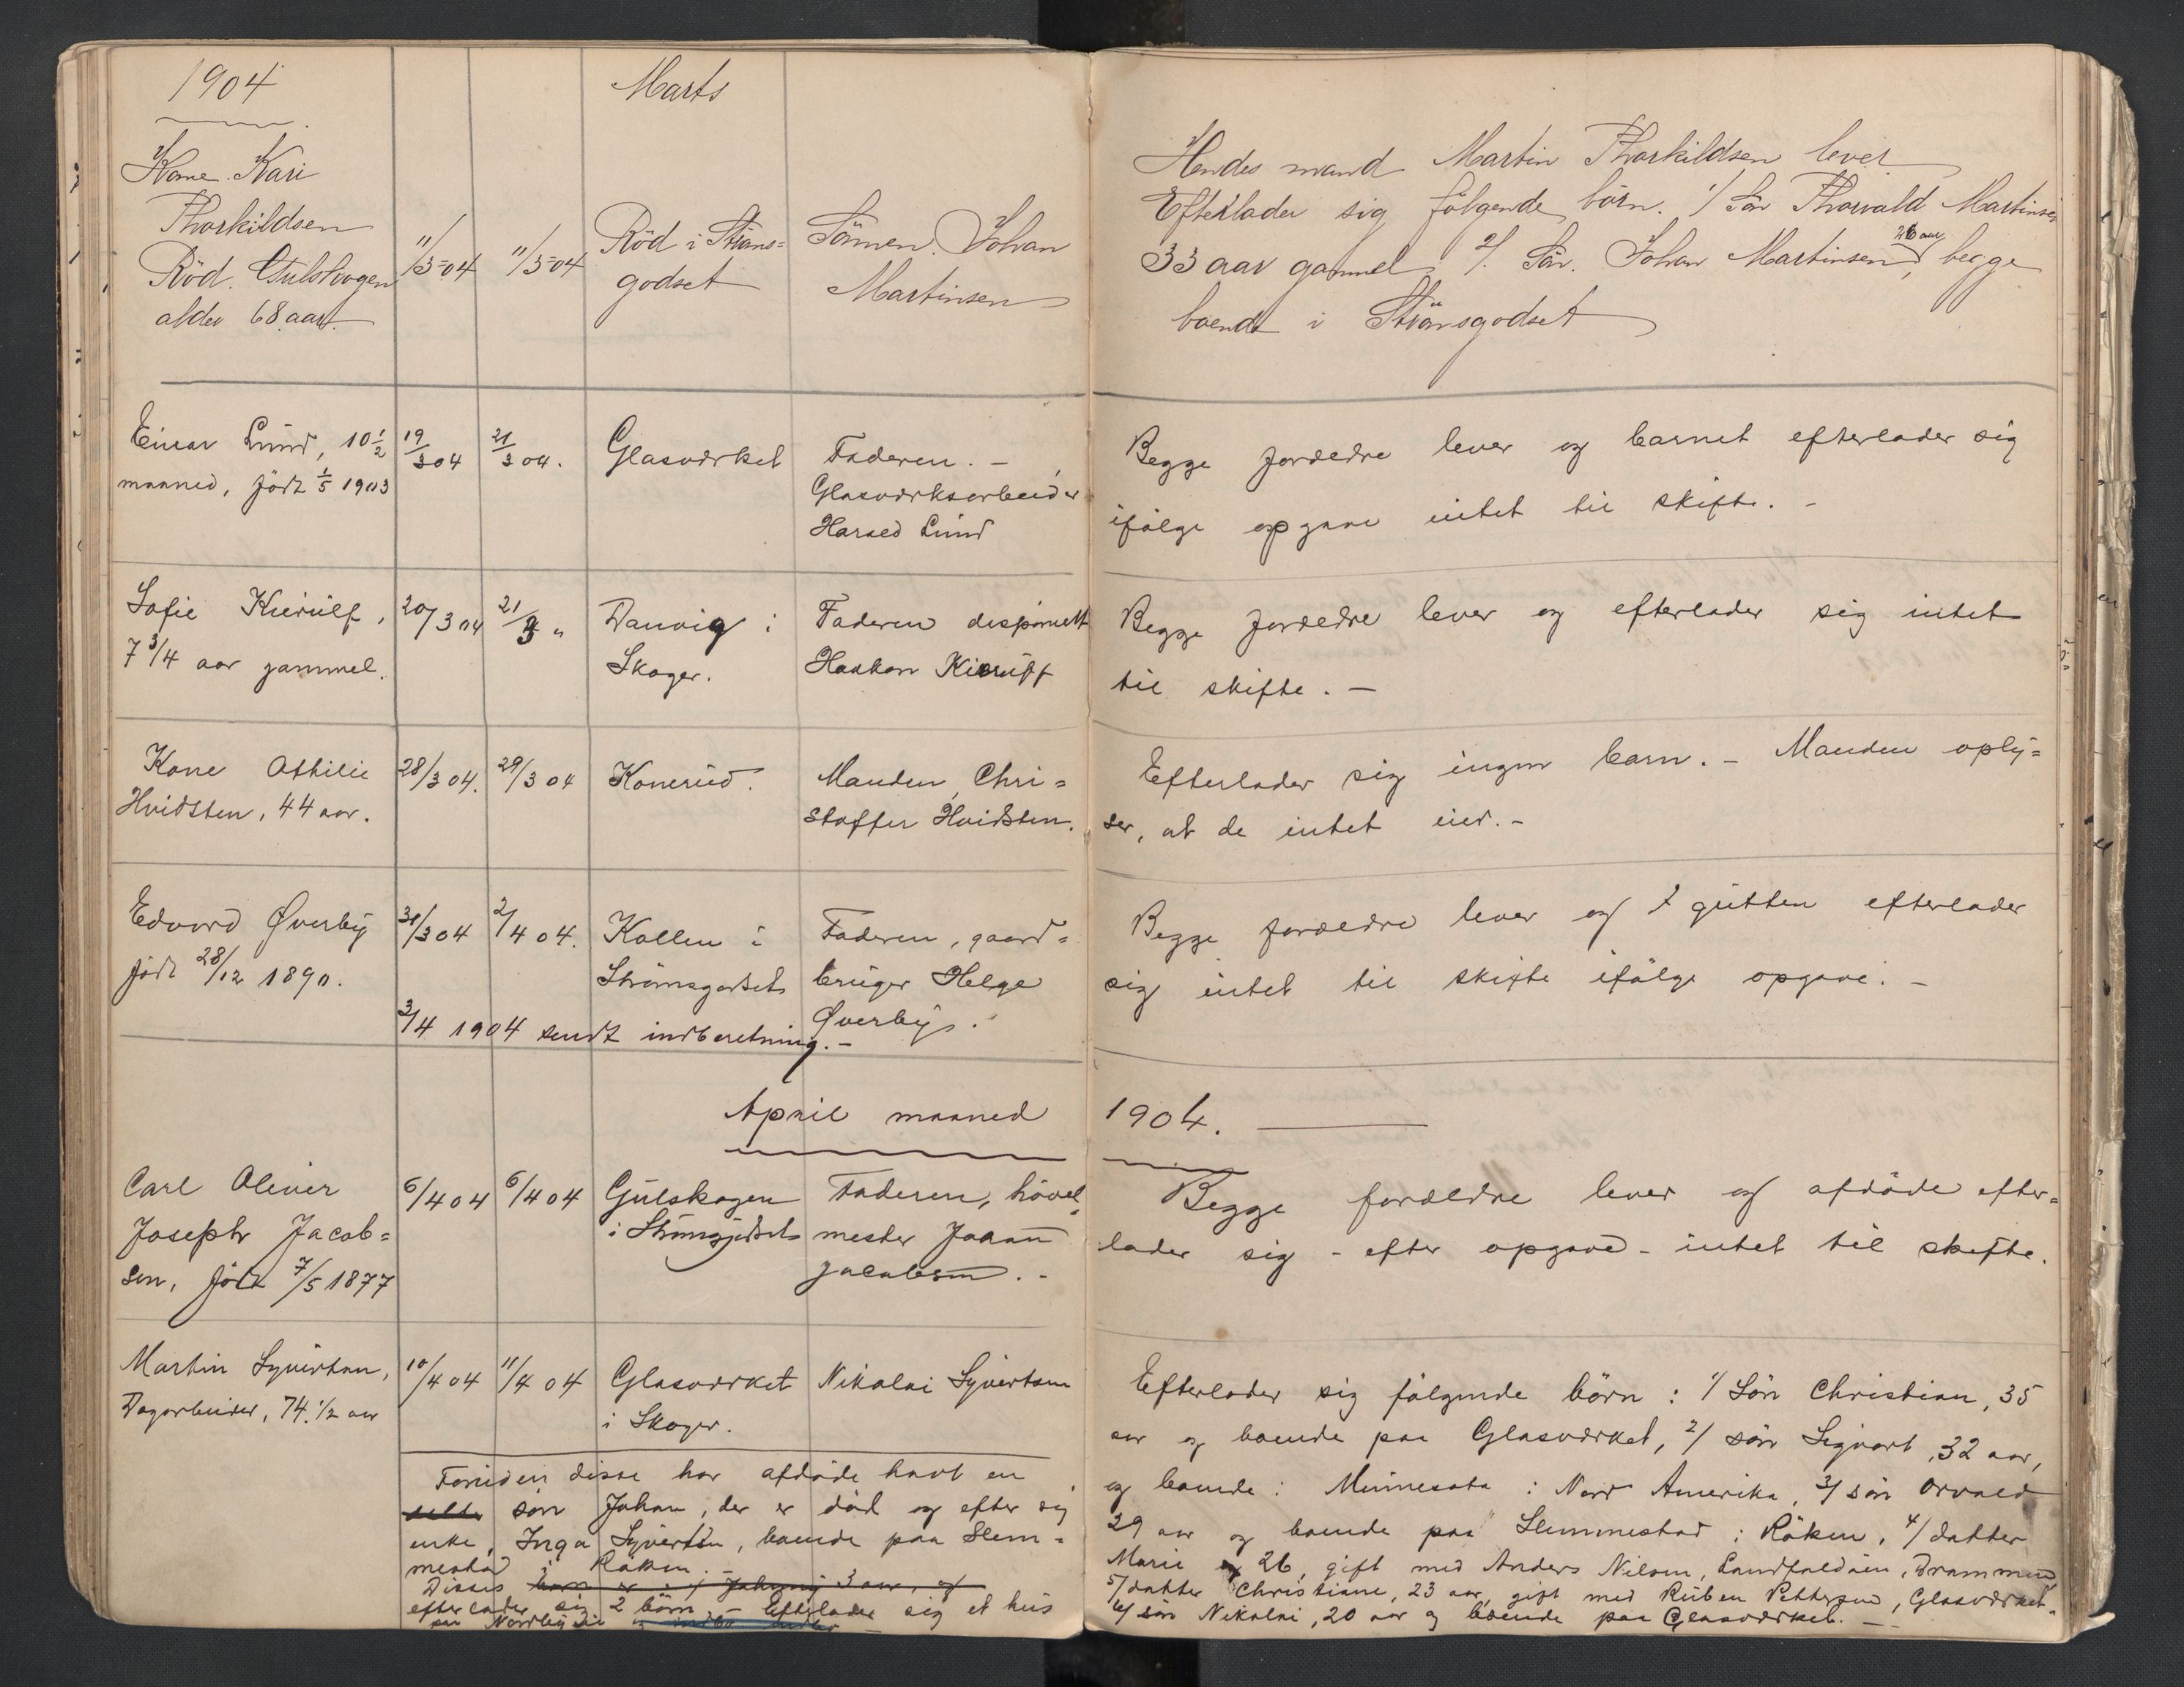 1904 Marts
Kone Kari
Thorkildsen
Röd. Gulskogen
alder 68 aar.
11/3-04
11/3-04
Röd i Ströms=
godset
Sönnen. Johan
Martinsen
Hendes mand Martin Thorkildsen lever
Efterlader sig fölgende börn. 1/ Sön Thorvald Martinsen
33 aar gammel 2/. Sön. Johan Martinsen 26 aar, begge
boende i Strömsgodset
Einar Lund, 10 1/2
maaned, födt 1/5 1903
19/3 04
21/3 04.
Glasværket
Faderen. -
Glasværksarbeider
Harald Lund
Begge forældre lever og barnet efterlader sig
ifölge opgave intet til skifte. -
Sofie Kierulf,
7 3/4 aar gammel.
20/3 04
21/3 "
Danvig i
Skoger.
Faderen disponent
Haakon Kierulf
Begge forældre lever og efterlader sig intet
til skifte. -
Kone Othilie
Hvidsten, 44 aar.
28/3 04.
29/3 04
Konerud.
Manden, Chri=
stoffer Hvidsten.
Efterlader sig ingen barn. - Manden oply=
ser, at de intet eier. -
Edvard Øverby
födt 28/12 1890.
31/3 04
2/4 04.
Kollen i
Strömsgodset
Faderen, gaard=
bruger Helge
Øverby.
Begge forældre lever og gutten efterlader
sig intet til skifte ifölge opgave. -
2/4 1904 sendt indberetning. -
April maaned 1904.
Carl Oliver
Joseph Jacob=
sen, födt 7/5 1877
6/4 04
6/4 04
Gulskogen
i Strömsgodset
Faderen, hövel=
mester Johan
Jacobsen. -
Begge forældre lever og afdöde efter=
lader sig - efter opgave - intet til skifte.
Martin Syvertsen,
Dagarbeider, 74 1/2 aar
10/4 04
11/4 04
Glasværket
i Skoger.
Nikolai Syvertsen
Efterlader sig fölgende börn: 1/ Sön Christian, 35
aar og boende paa Glasværket, 2/ sön Sigvart, 32 aar,
og boende i Minnesota i Nord Amerika, 3/ sön Orvald
29 aar og boende paa Slemmestad i Röken, 4/ datter
Marie 26, gift med Anders Nilsen, Landfaldöien, Drammen
5/ datter Christiane, 23 aar, gift med Ruben Pettersen, Glasværket
6/ sön Nikolai, 20 aar og boende paa Glasværket. -
Foruden disse har afdöde havt en
sön Johan, der er död og efter sig
enke, Inga Syvertsen, boende paa Slem=
mestad i Röken. -
Disses barn er: 1/ Johnny 3 aar, og
efterlader sig 2 börn - Efterlader sig et hus
paa Nordbyeie